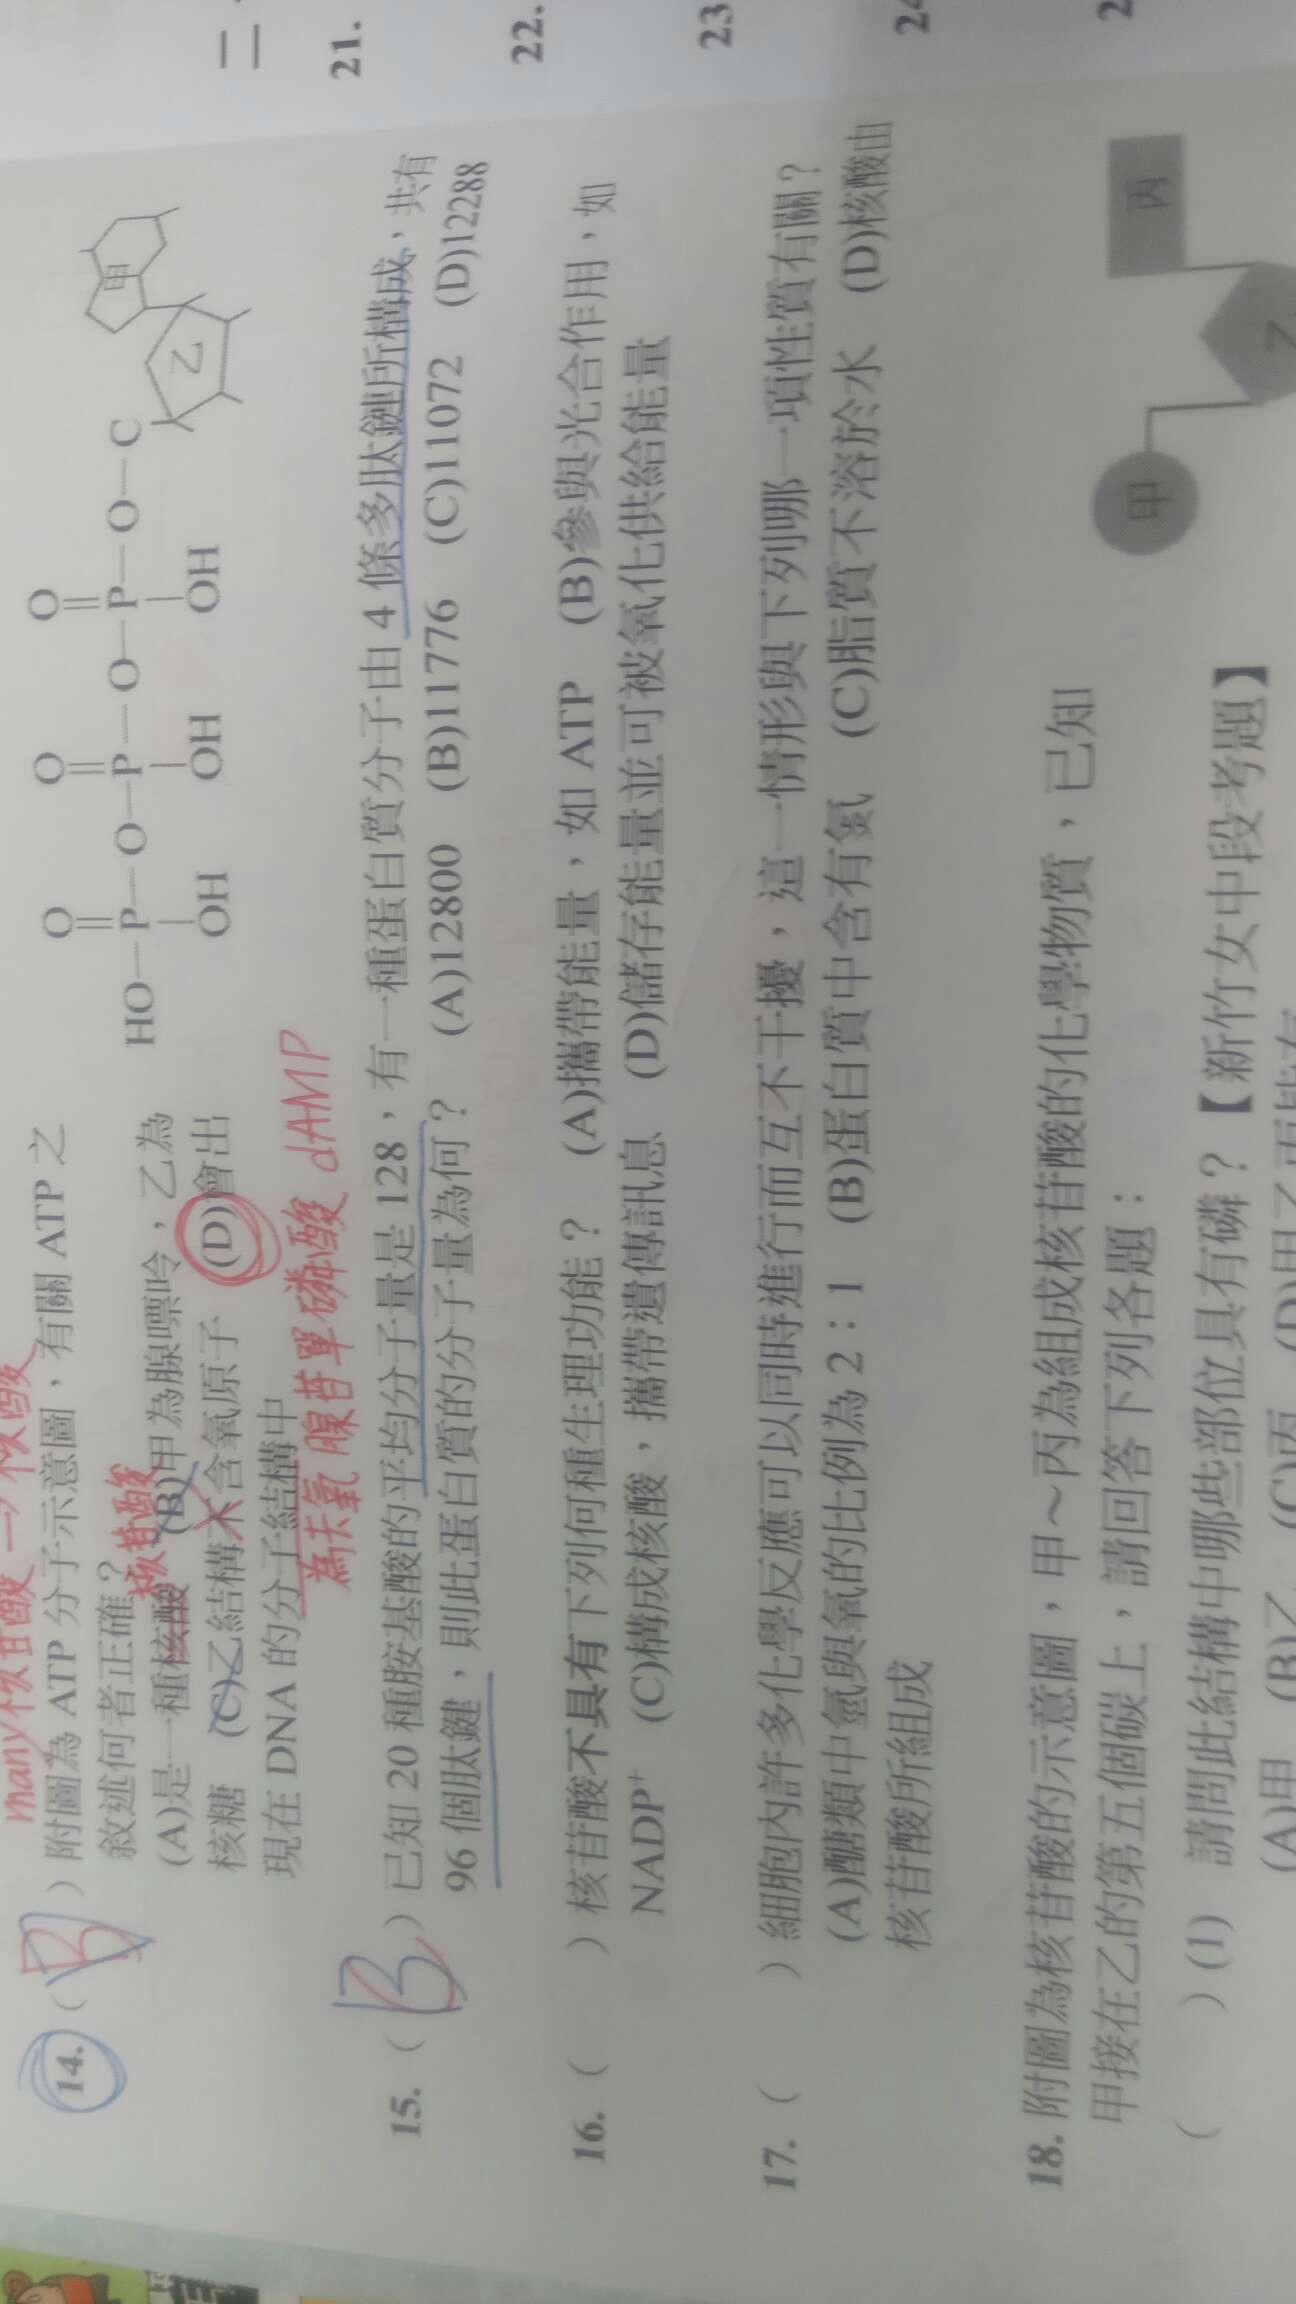 many核苷酸→核酸
14. ( B ) 附圖為 ATP 分子示意圖，有關 ATP 之
敘述何者正確？
(A)是一種核酸 核苷酸 (B)甲為腺嘌呤，乙為
核糖 (C)乙結構不含氧原子 (D)會出
現在 DNA 的分子結構中
為失氧腺苷單磷酸 dAMP
O O O
HO—P—O—P—O—P—O—C
OH OH OH
甲
乙
15. ( B ) 已知 20 種胺基酸的平均分子量是 128，有一種蛋白質分子由 4 條多肽鏈所構成，共有
96 個肽鍵，則此蛋白質的分子量為何？ (A)12800 (B)11776 (C)11072 (D)12288
16. ( ) 核苷酸不具有下列何種生理功能？ (A)攜帶能量，如 ATP (B)參與光合作用，如
NADP⁺ (C)構成核酸，攜帶遺傳訊息 (D)儲存能量並可被氧化供給能量
17. ( ) 細胞內許多化學反應可以同時進行而互不干擾，這一情形與下列哪一項性質有關？
(A)醣類中氫與氧的比例為 2：1 (B)蛋白質中含有氮 (C)脂質不溶於水 (D)核酸由
核苷酸所組成
18. 附圖為核苷酸的示意圖，甲～丙為組成核苷酸的化學物質，已知
甲接在乙的第五個碳上，請回答下列各題：
甲
乙
丙
( ) (1) 請問此結構中哪些部位具有磷？【新竹女中段考題】
(A)甲 (B)乙 (C)丙 (D)甲乙丙皆有
二、
21.
22.
23
24
2